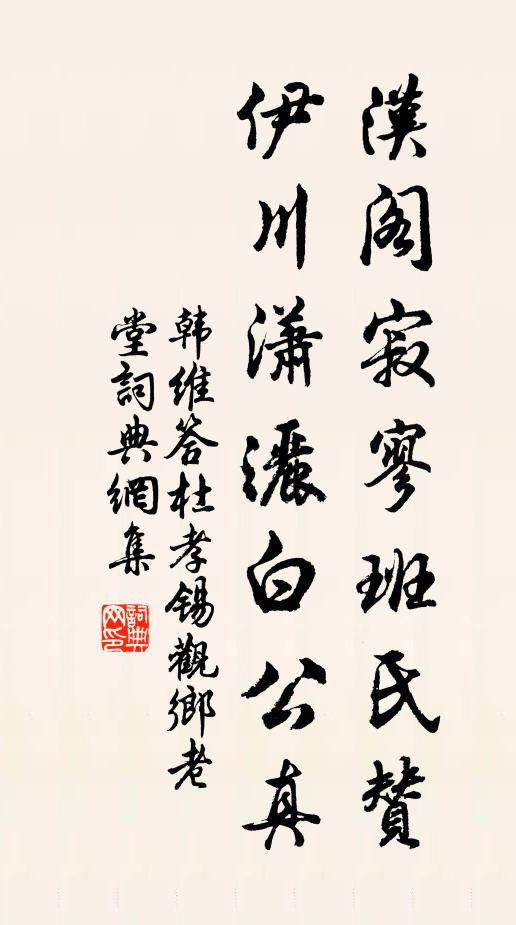 漢阁寂寥班氏贊
伊川瀟灑白公真
韩維答杜孝锡觀鄉老
堂詞典網集
詞典
网印